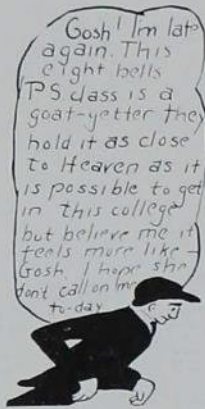 Gosh! I'm late
again. This
eight bells
PS class is a
goat-getter they
hold it as close
to Heaven as it
is possible to get
in this college
but believe me it
feels more like -
Gosh, I hope she
don't call on me
to-day